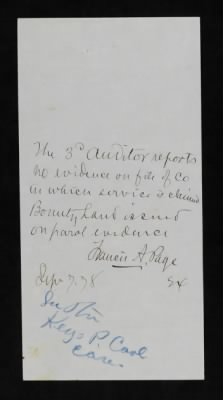 The 3d Auditor reports
no evidence on file of Co
in which service is claimed
Bounty Land issued
on parol evidence
Francis A. Page
Sep 7. 78 Ex
Keys P. Cool
Care.